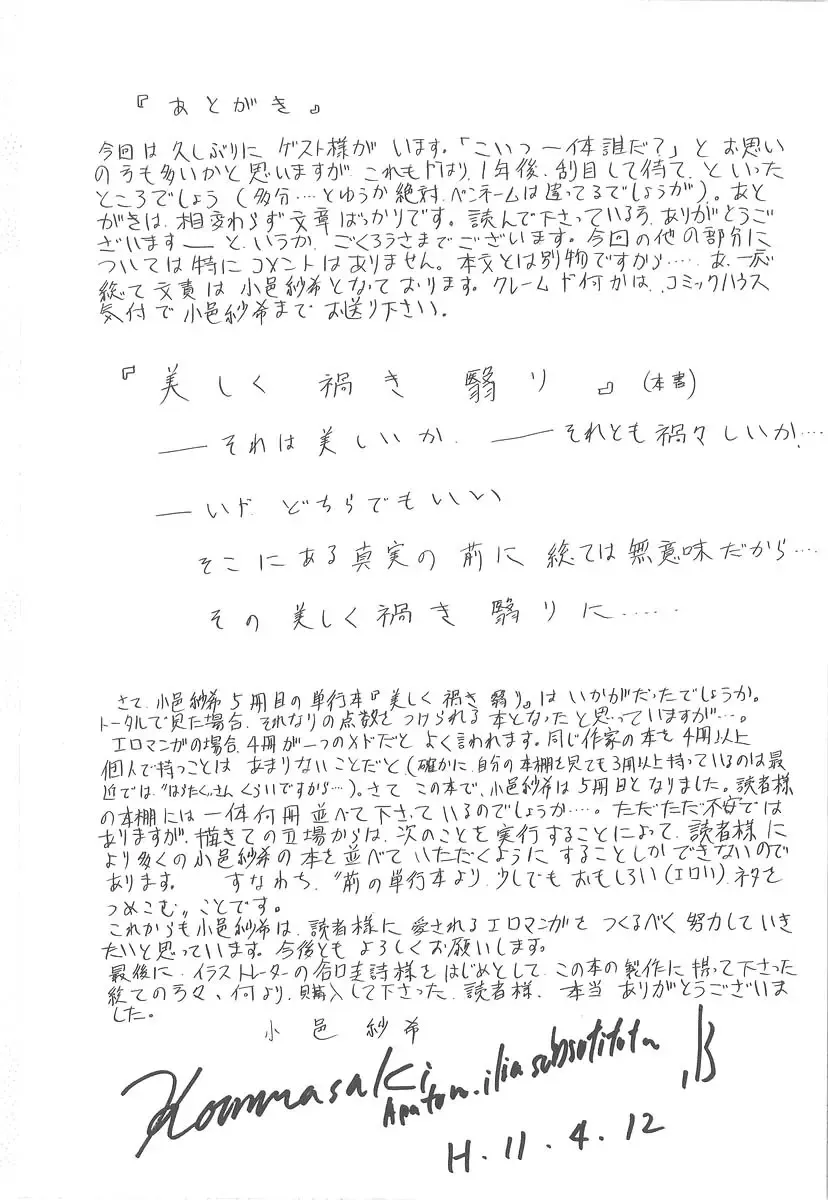 『あとがき』
今回は久しぶりにゲスト様がいます。「こいつ一体誰だ?」とお思い
の方も多いかと思いますが、これもやはり、1年後、刮目して待て、といった
ところでしょう(多分‥‥とゆうか絶対、ペンネームは違ってるでしょうが)。あと
がきは、相変わらず文章ばっかりです。読んで下さっている方、ありがとうご
ざいます――と、いうか、ごくろうさまでございます。今回の他の部分に
ついては特にコメントはありません。本文とは別物ですから‥‥。あ、一応
総て文責は小邑紗希となております。クレームや何かは、コミックハウス
気付で小邑紗希までお送り下さい。
『美しく禍き翳り』(本書)
――それは美しいか、――それとも禍々しいか‥‥
――いや どちらでもいい
そこにある真実の前に総ては無意味だから‥‥
その美しく禍き翳りに‥‥‥
さて、小邑紗希5冊目の単行本『美しく禍き翳り』はいかがだったでしょうか。
トータルで見た場合、それなりの点数をつけられる本となったと思っていますが‥‥。
エロマンガの場合、4冊が一つのメドだとよく言われます。同じ作家の本を4冊以上
個人で持つことはあまりないことだと(確かに、自分の本棚を見ても3冊以上持っているのは最
近では“はらたく”さんくらいですから‥‥)。さて、この本で、小邑紗希は5冊目となりました。読者様
の本棚には一体何冊並べて下さているのでしょうか‥‥。ただただ不安では
ありますが、描きての立場からは、次のことを実行することによって、読者様に
より多くの小邑紗希の本を並べていただくようにすることしかできないので
あります。 すなわち、“前の単行本より、少しでもおもしろい(エロい)ネタを
つめこむ”ことです。
これからも小邑紗希は、読者様に愛されるエロマンガをつくるべく努力していき
たいと思っています。今後ともよろしくお願いします。
最後に、イラストレーターの合口圭詩様をはじめとして、この本の製作に携って下さった
総ての方々、何より、購入して下さった、読者様、本当ありがとうございま
した。
小邑紗希
Komurasaki
H.11.4.12